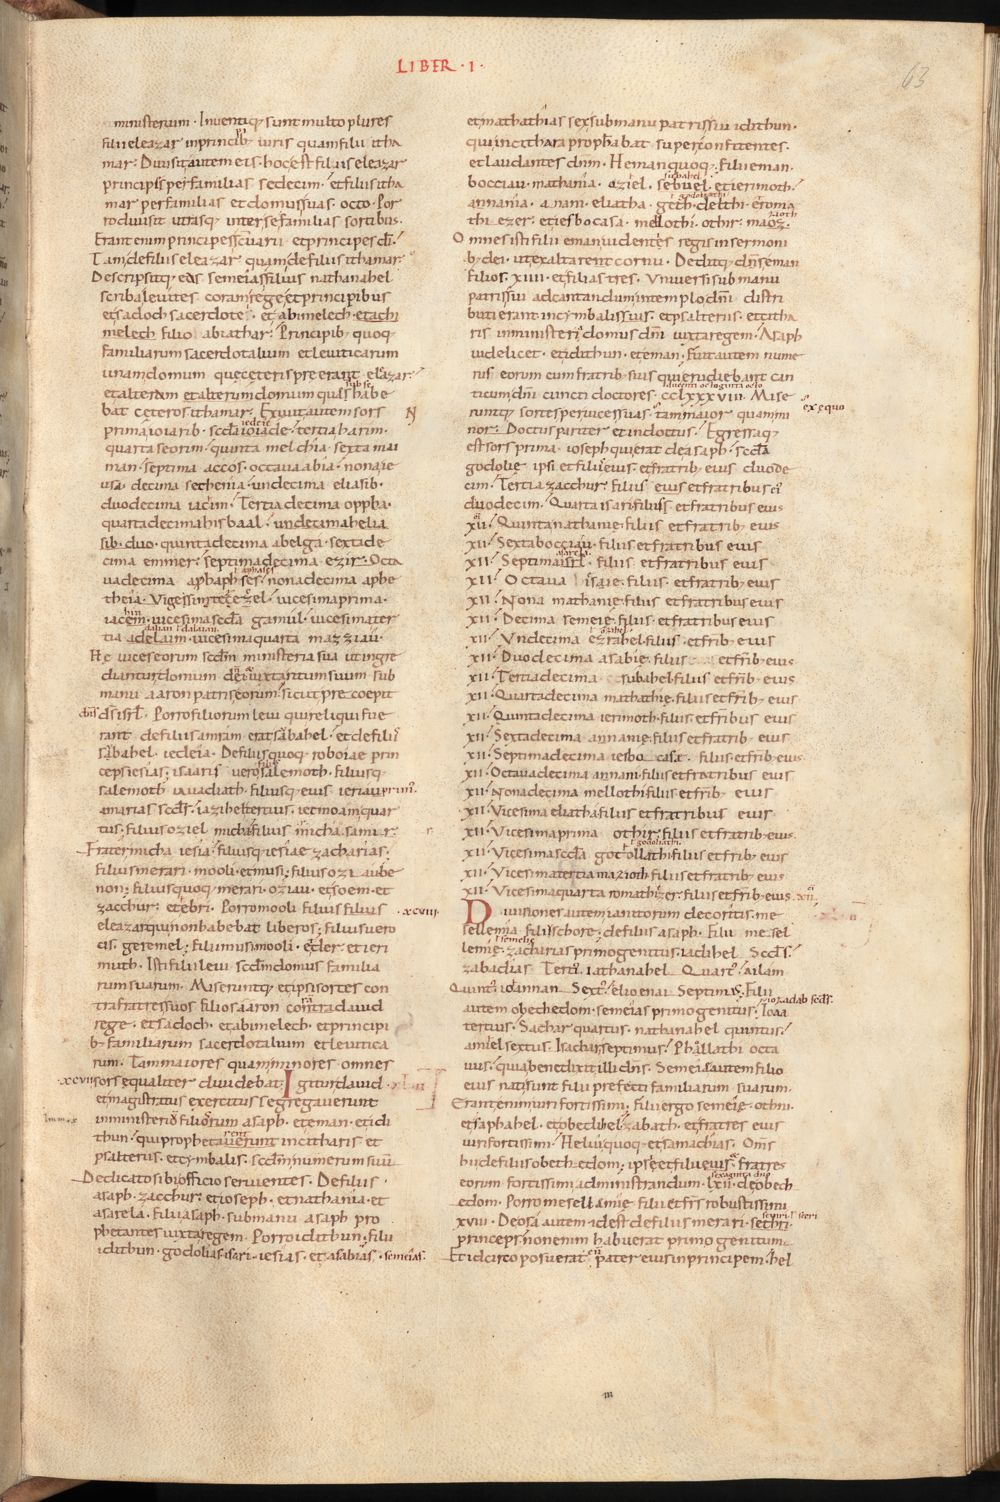 LIBER · I ·
63
ministerium · Inventiq; sunt multo plures
filii eleazar inprincib; viris quam filii itha
mar · Divisit autem eis · hoc est filiis eleazar
principes per familias sedecim · et filiis itha
mar per familias et domus suas · octo · Por
ro divisit utrasq; inter se familias sortibus ·
Erant enim principes sc̄uarii et principes dī ·
Tam de filiis eleazar quam de filiis ithamar
Descripsitq; eos semeias filius nathanahel
scriba levites coram rege et principibus
et sadoch sacerdote · et abimelech et achi
melech filio abiathar · Principib; quoq;
familiarum sacerdotalium et leviticarum
unam domum que ceteris pre erant eleazar ·
et alteram et alterum domum quas habe
bat ceteros ithamar · Exivit autem sors
prima ioiarib · sc̄da ioiade · tertia harim ·
quarta seorim · quinta melchia · sexta mai
man · septima accos · octava abia · nona ie
usa · decima sechenia · undecima eliasib ·
duodecima iacim · Tertia decima oppha ·
quarta decima hisbaal · undecima helia
sib · duo · quinta decima abelga · sexta de
cima emmer · septima decima ezir · Octa
va decima aphaph ses · nona decima aphe
theia · Vigessim · ezel · vicesima prima ·
iacem · vicesima sc̄da gamul · vicesima ter
tia adelaim · vicesima quarta mazziau ·
He vices eorum sc̄dm ministeria sua ut ingre
diantur domum dei iuxta ritum suum sub
manu aaron patris eorum · sicut precoepit
dn̄s ds isrl · Porro filiorum levi qui reliqui fue
rant de filiis amram erat sabahel · et de filiis
sabahel · iedeia · De filiis quoq; roboiae prin
ceps iesias · isaaris vero salemoth · filiusq;
salemoth iavadiath · filiusq; eius ieriau prim ·
amarias sc̄ds · iazihel tertius · ietmoam quar
tus · filius oziel micha · filius micha samir ·
Frater micha iesia · filiusq; iesiae zacharias ·
filii merari · mooli et musi · filius oziau be
non · filius quoq; merari · oziau · et soem · et
zacchur · et ebri · Porro mooli filius filius
· xcviii ·
eleazar qui non habebat liberos · filius vero
cis · geremel · filii musi mooli · eder · et ieri
muth · Isti filii levi sc̄dm domus familia
rum suarum · Miseruntq; et ipsi sortes con
tra fratres suos filios aaron contra david
rege · et sadoch · et abimelech · et principi
b; familiarum sacerdotalium et levitica
rum · Tam maiores quam minores omnes
· xcviiii sors equaliter dividebat · Igitur david
et magistratus exercitus segregaverunt
in ministerio filiorum asaph · et eman · et idi
thun · qui prophetaverunt in citharis et
psalteriis · et cymbalis · sc̄dm numerum suum
Dedicato sibi officio servientes · De filiis
asaph · zacchur · et ioseph · et nathania · et
asarela · filii asaph · sub manu asaph pro
phetantes iuxta regem · Porro idithun · filii
idithun · godolias · isari · iesias · et asabias · semeias ·
et mathathias sex sub manu patris sui idithun ·
qui in cithara prophabat super confitentes ·
et laudantes dn̄m · Heman quoq; · filii eman ·
bocciau · mathania · oziel · sebuel · et ierimoth ·
annania · anani · eliatha · geth · delthi · et roma
thi ezer · et iesbocasa · mellothi · othir · maoz ·
Omnes isti filii eman videntes regis in sermoni
b; dei · ut exaltarent cornu · Deditq; dn̄s eman
filios · xiiii · et filias tres · Universi sub manu
patris sui ad cantandum in templo dn̄i distri
buti erant in cymbalis suis · et psalteriis · et citha
ris in ministeria domus dn̄i iuxta regem · Asaph
videlicet · et idithun · et eman · Fuit autem nume
rus eorum cum fratrib; suis qui erudiebant can
ticum dn̄i cuncti doctores · cclxxxviii · Mise
ex ęquo
runtq; sortes per vices suas · tam maior quam mi
nor · Doctus pariter et indoctus · Egressaq;
est sors prima · ioseph qui erat de asaph · sc̄da
godolie ipsi et filii eius · et fratrib; eius duode
cim · Tertia zacchur · filiis eius et fratribus ei
duodecim · Quarta isari · filiis et fratribus eius
xii · Quinta nathanie · filiis et fratrib; eius
xii · Sexta bocciau · filiis et fratribus eius
xii · Septima isrl · filiis et fratribus eius
xii · Octava isaie · filiis · et fratrib; eius
xii · Nona mathanie · filiis et fratribus eius
xii · Decima semeie · filiis et fratribus eius
xii · Undecima ezrahel · filiis · et frib; eius
xii · Duodecima asabie · filiis et frib; eius
xii · Tertia decima subahel filiis et frib; eius
xii · Quarta decima mathathie · filiis et frib; eius
xii · Quinta decima ierimoth · filiis et fribus eius
xii · Sexta decima annanie · filiis et fratrib; eius
xii · Septima decima iesbocase · filiis et frib; eius
xii · Octava decima annani · filiis et fratribus eius
xii · Nona decima mellothi filiis et frib; eius
xii · Vicesima eliatha filiis et fratribus eius
xii · Vicesima prima othir · filiis et fratrib; eius
xii · Vicesima sc̄da godollathi · filiis et frib; eius
xii · Vicesima tertia mazioth filiis et fratrib; eius
xii · Vicesima quarta romathiezer · filiis et frib; eius · xii
Divisiones autem ianitorum de coritis · me
sellemia filius chore · de filiis asaph · Filii mesel
lemie · zacharias primogenitus · iadihel Sc̄ds ·
zabadias Terts · iathanahel Quarts · ailam
Quints · iohannan Sexts · elioenai Septimus · Filii
autem obethedom · semeias primogenitus · Ioaa
tertius · Sachar quartus · nathanahel quintus ·
amiel sextus · Isachar septimus · Phollathi octa
vus · quia benedixit illi dn̄s · Semei autem filio
eius nati sunt filii prefecti familiarum suarum ·
Erant enim viri fortissimi · filii ergo semeie · othni ·
et saphahel · et obed · ihel · zabath · et fratres eius
viri fortissimi · Heliu quoq; et samachias · Om̄s
hi de filiis obethedom · ipse et filii eius · fratres
eorum fortissimi administrandum · lxii · de obeth
edom · Porro mesellamie filii et frs robustissimi
xviii · De osa autem · id est de filiis merari · sechri ·
princeps · non enim habuerat primogenitum ·
Et idcirco posuerat eum pater eius in principem · hel
m